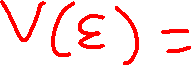 V(ε) =